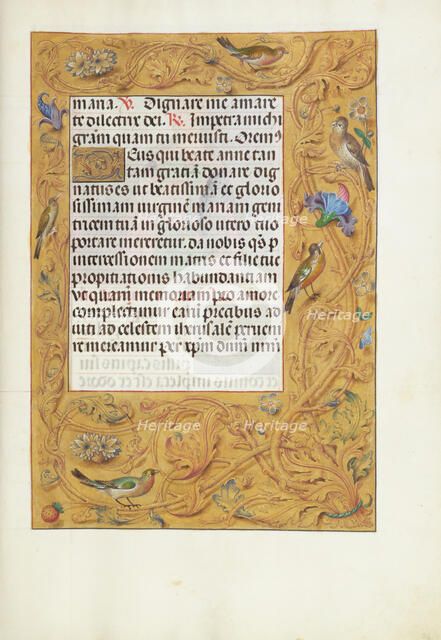 mana. V. Dignare me amare
te dilectrix dei. R. Impetra michi
gratiam quam tu meruisti. Oremus
Deus qui beate anne tan
tam gratiam donare dig
natus es ut beatissimam et glorio
sissimam virginem mariam geni
tricem tuam in glorioso utero suo
portare mereretur. da nobis qs p
intercessionem matris et filie tue
propitiationis habundantiam
ut quarum memoriam pio amore
complectimur earum precibus ad
civitatem celestem iherusalem pervenire
re mereamur per xpm dnm nrm
Heritage
Heritage
Heritage
Heritage
Heritage
Heritage